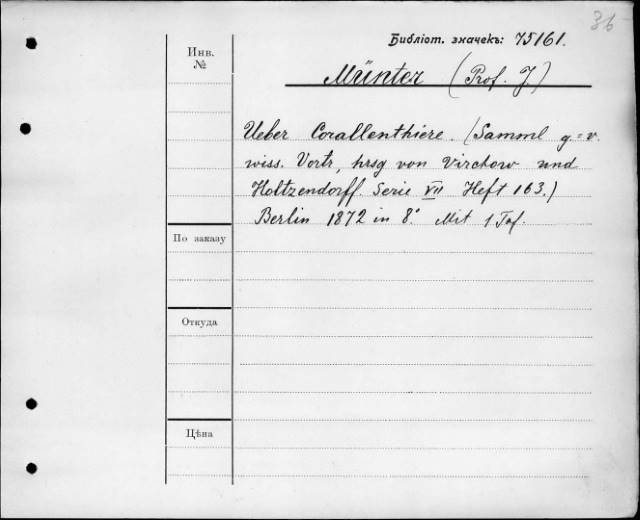 36
Библіот. значекъ: 75161.
Инв.
№
Münter (Prof. J.)
Ueber Corallenthiere. (Samml g=v.
wiss. Vortr, hrsg von Virchow und
Holtzendorff. Serie VII Heft 163.)
Berlin 1872 in 8°. Mit 1 Taf.
По заказу
Откуда
Цѣна